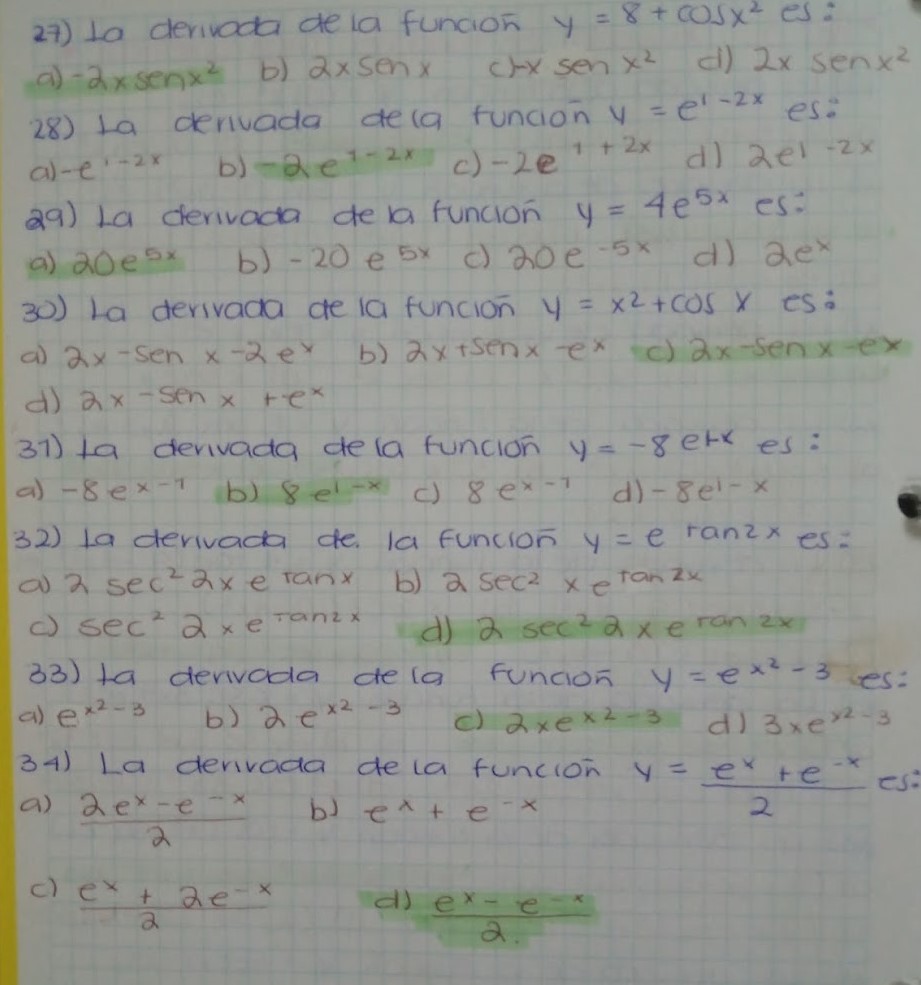 27) La derivada de la función y = 8 + cosx² es:
a) -2xsenx² b) 2xsenx c) -x sen x² d) 2x senx²
28) La derivada de la función y = e¹⁻²ˣ es:
a) -e¹⁻²ˣ b) -2e¹⁻²ˣ c) -2e¹⁺²ˣ d) 2e¹⁻²ˣ
29) La derivada de la función y = 4e⁵ˣ es:
a) 20e⁵ˣ b) -20e⁵ˣ c) 20e⁻⁵ˣ d) 2eˣ
30) La derivada de la función y = x²+cos x es:
a) 2x-sen x-2eˣ b) 2x+senx-eˣ c) 2x-senx-eˣ
d) 2x-sen x +eˣ
31) La derivada de la función y = -8e¹⁻ˣ es:
a) -8eˣ⁻¹ b) 8e¹⁻ˣ c) 8eˣ⁻¹ d) -8e¹⁻ˣ
32) La derivada de la función y = e ᵀᵃⁿ²ˣ es:
a) 2 sec² 2x e ᵀᵃⁿˣ b) 2 sec² x e ᵀᵃⁿ²ˣ
c) sec² 2x e ᵀᵃⁿ²ˣ d) 2 sec² 2x e ᵀᵃⁿ²ˣ
33) La derivada de la función y = eˣ²⁻³ es:
a) eˣ²⁻³ b) 2eˣ²⁻³ c) 2xeˣ²⁻³ d) 3xeˣ²⁻³
34) La derivada de la función y = eˣ+e⁻ˣ/2 es:
a) 2eˣ-e⁻ˣ/2 b) eˣ+e⁻ˣ
c) eˣ+2e⁻ˣ/2 d) eˣ-e⁻ˣ/2.